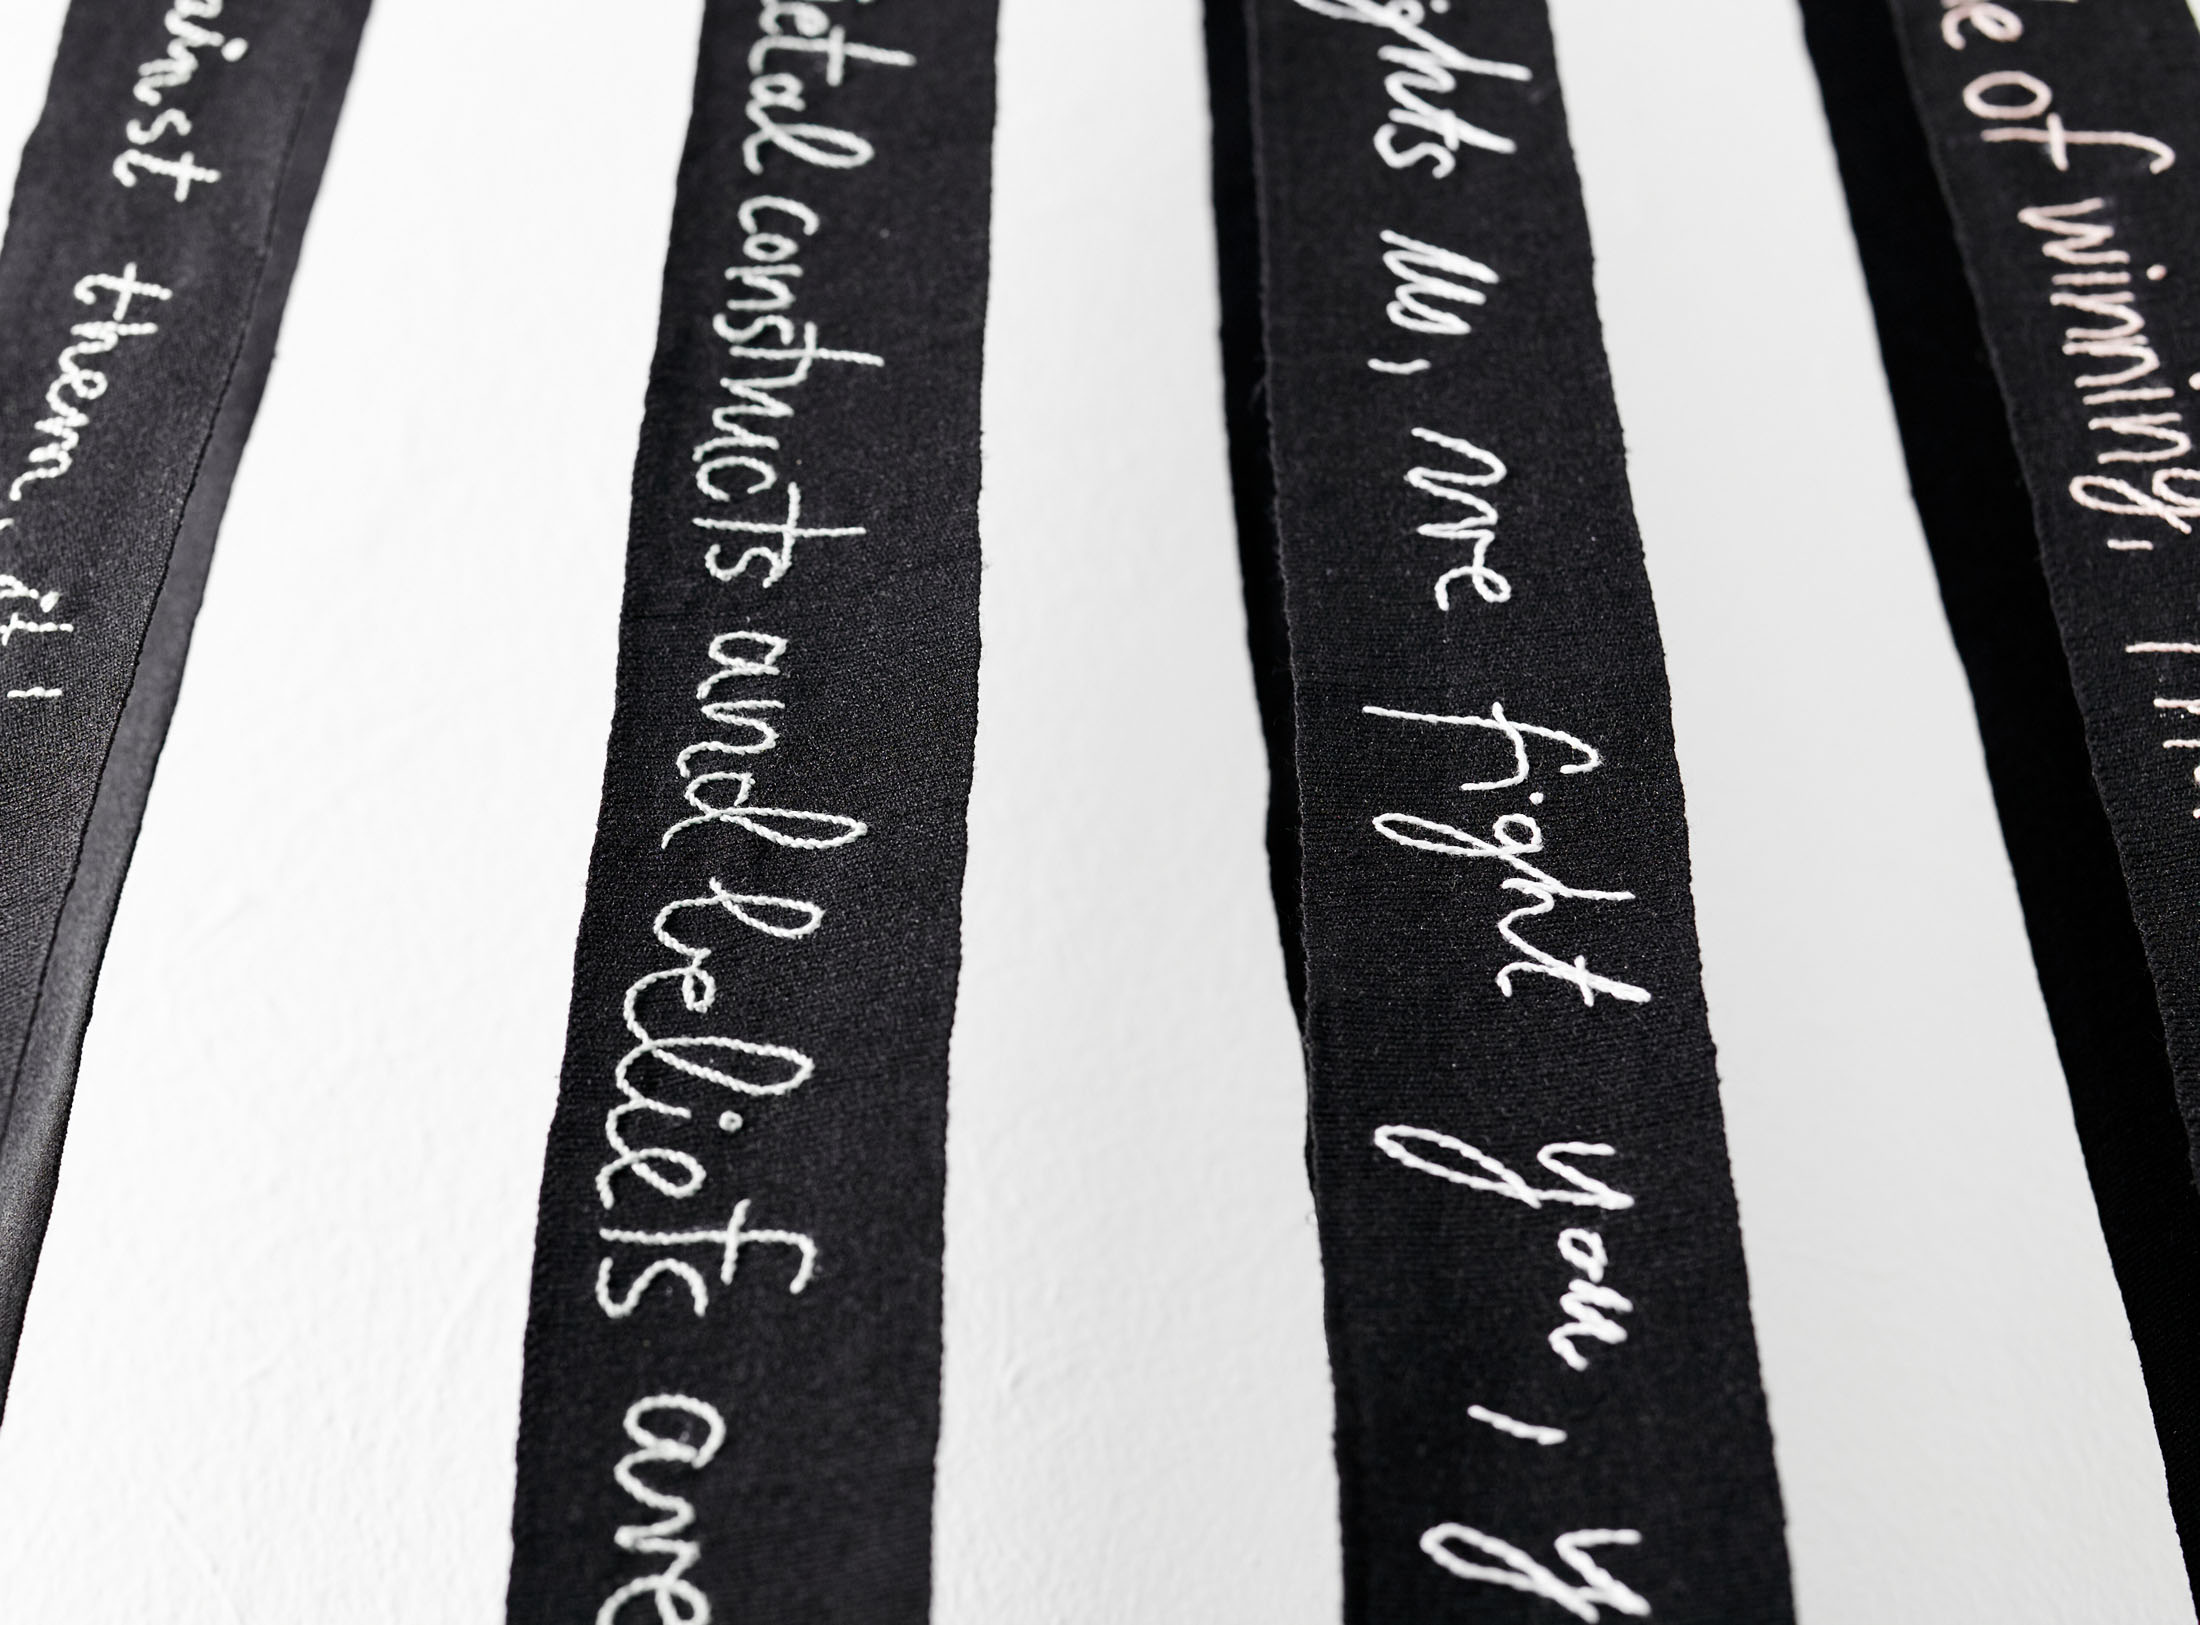 e of winning,
ights us, we fight you, y
ietal constructs and beliefs are
ainst them, it'